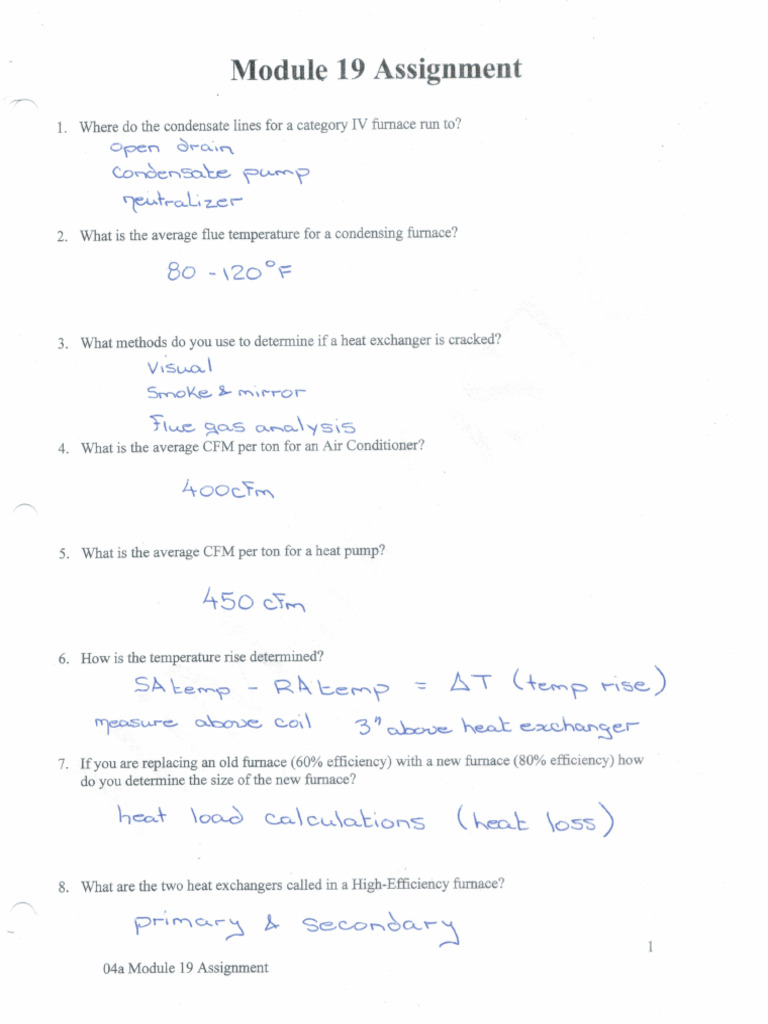 Module 19 Assignment
1. Where do the condensate lines for a category IV furnace run to?
open drain
condensate pump
neutralizer
2. What is the average flue temperature for a condensing furnace?
80 - 120°F
3. What methods do you use to determine if a heat exchanger is cracked?
Visual
Smoke & mirror
Flue gas analysis
4. What is the average CFM per ton for an Air Conditioner?
400cfm
5. What is the average CFM per ton for a heat pump?
450 cfm
6. How is the temperature rise determined?
SA temp - RA temp = ΔT (temp rise)
measure above coil 3" above heat exchanger
7. If you are replacing an old furnace (60% efficiency) with a new furnace (80% efficiency) how
do you determine the size of the new furnace?
heat load calculations (heat loss)
8. What are the two heat exchangers called in a High-Efficiency furnace?
primary & secondary
1
04a Module 19 Assignment